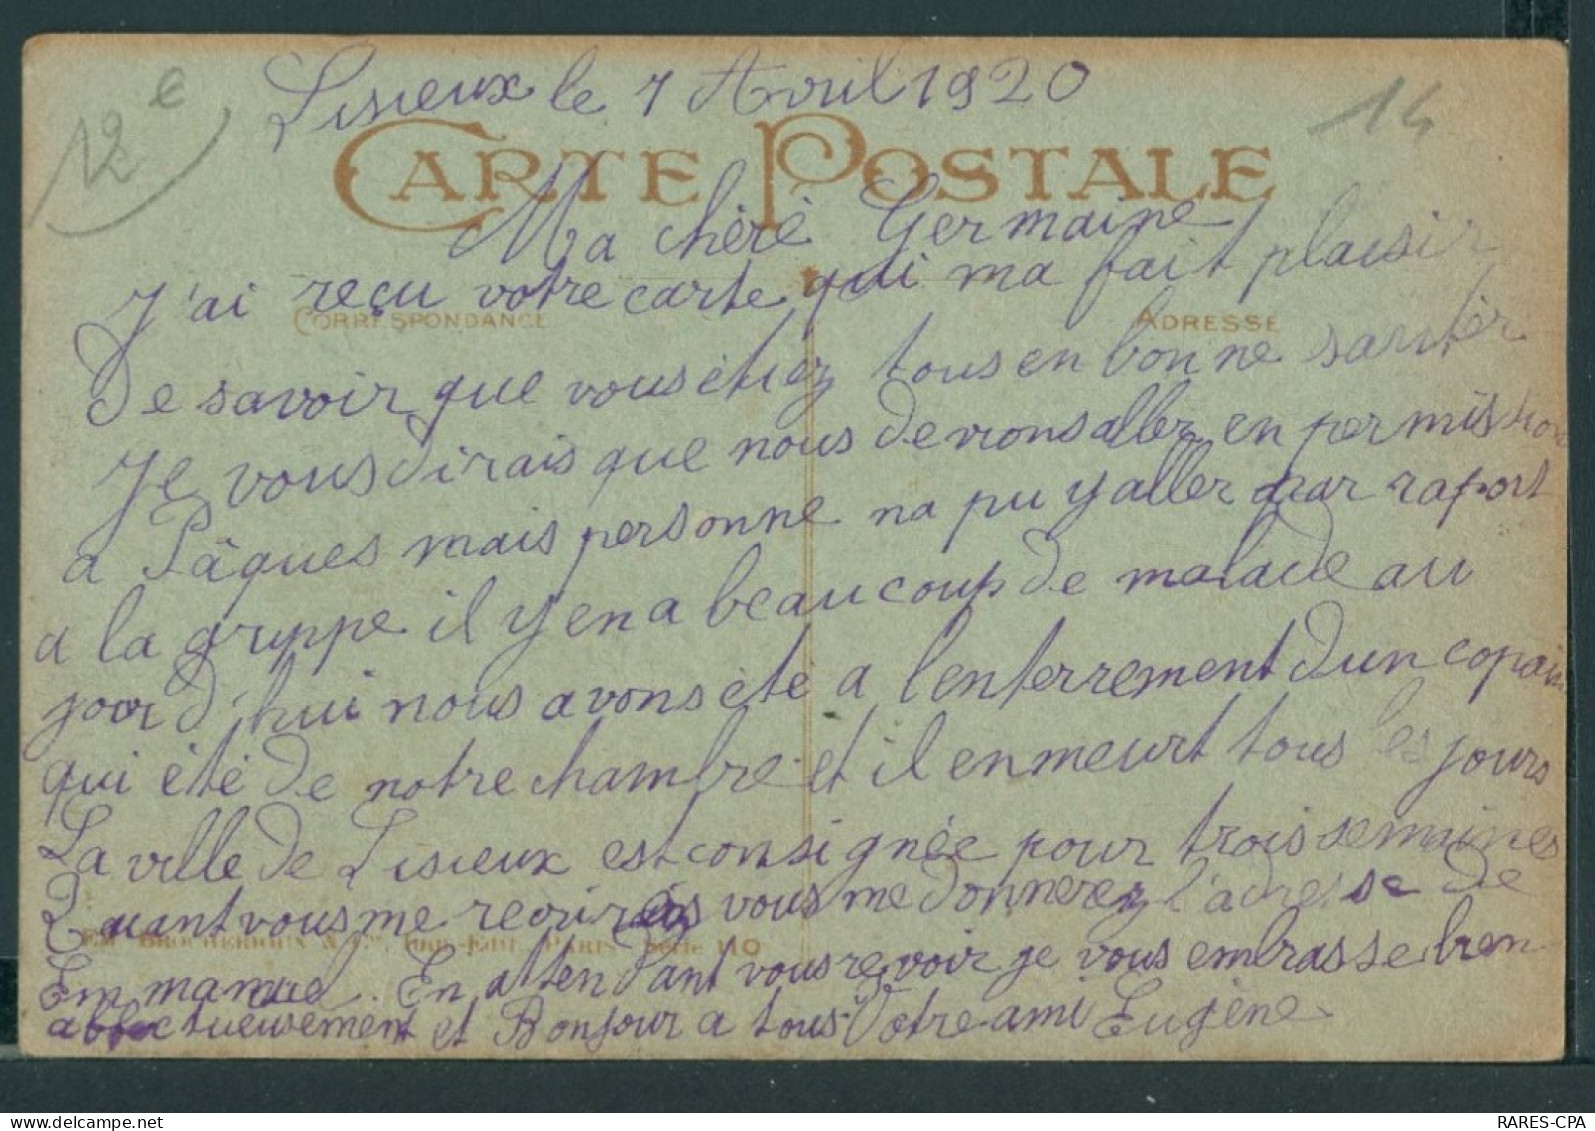 Lisieux le 7 Avril 1920
12 €
14
CARTE POSTALE
Ma chère Germaine
J'ai reçu votre carte qui ma fait plaisir
CORRESPONDANCE
ADRESSE
De savoir que vous étiez tous en bonne santér
Je vous dirais que nous devions aller en permission
a Pâques mais personne na pu y aller par raport
a la grippe il y en a beaucoup de malade au
jour d'hui nous avons été a l'enterrement d'un copain
qui été de notre chambre et il en meurt tous les jours
La ville de Lisieux est consignée pour trois semaines
Quant vous me recrirez vous me donnerez l'adresse de
Paris. Série 110
Emmanuel. En attendant vous revoir je vous embrasse bien
affectueusement et Bonjour a tous Votre ami Eugène
RARES-CPA